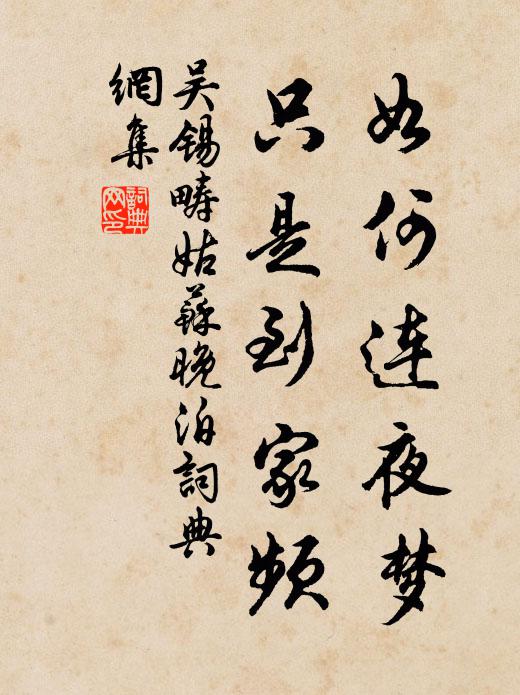 如何连夜梦
只是到家频
吴锡畴姑苏晚泊词典
網集
詞典
网印